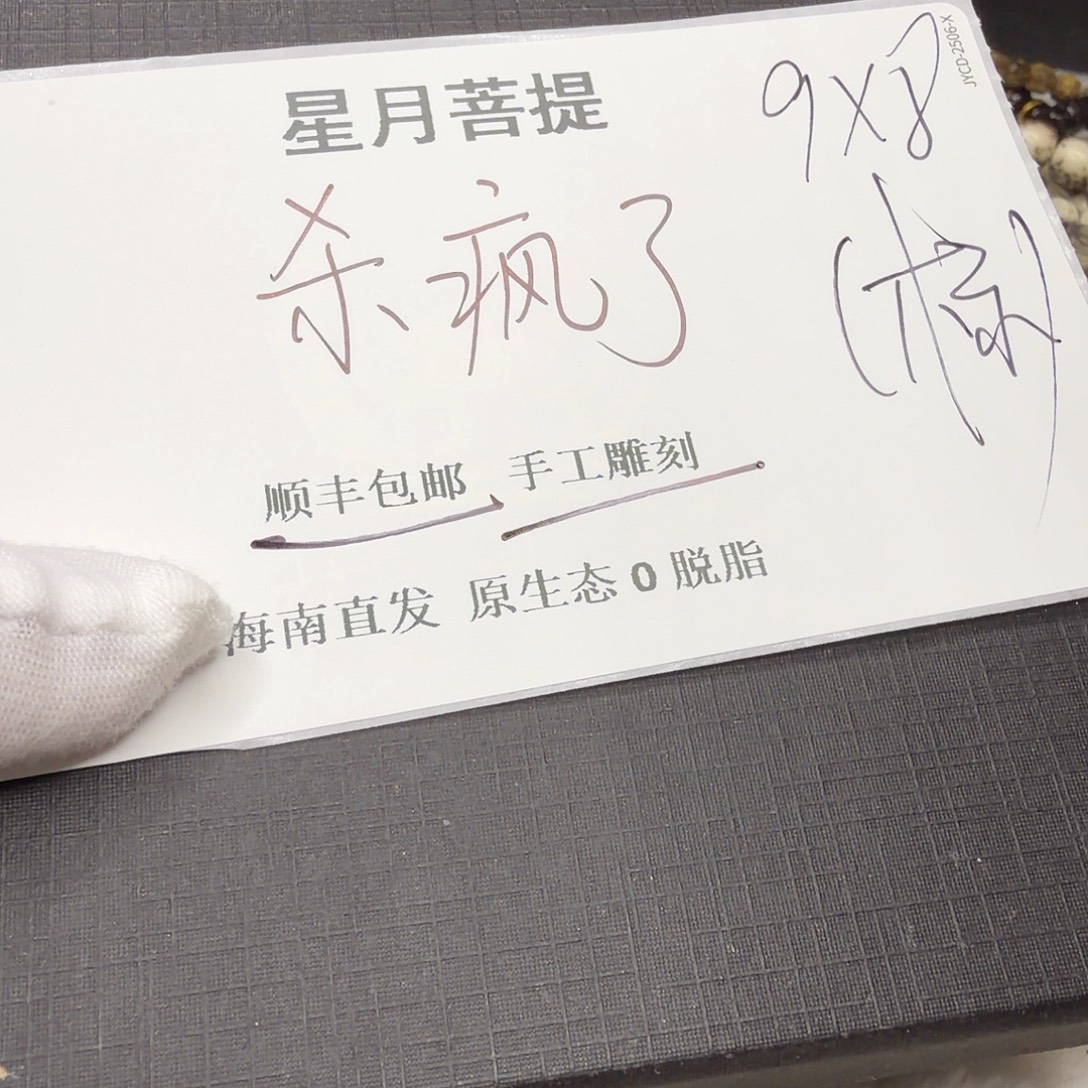 星月菩提
杀疯了
顺丰包邮 手工雕刻
海南直发 原生态0脱脂
9X8
JYCD-2506-X